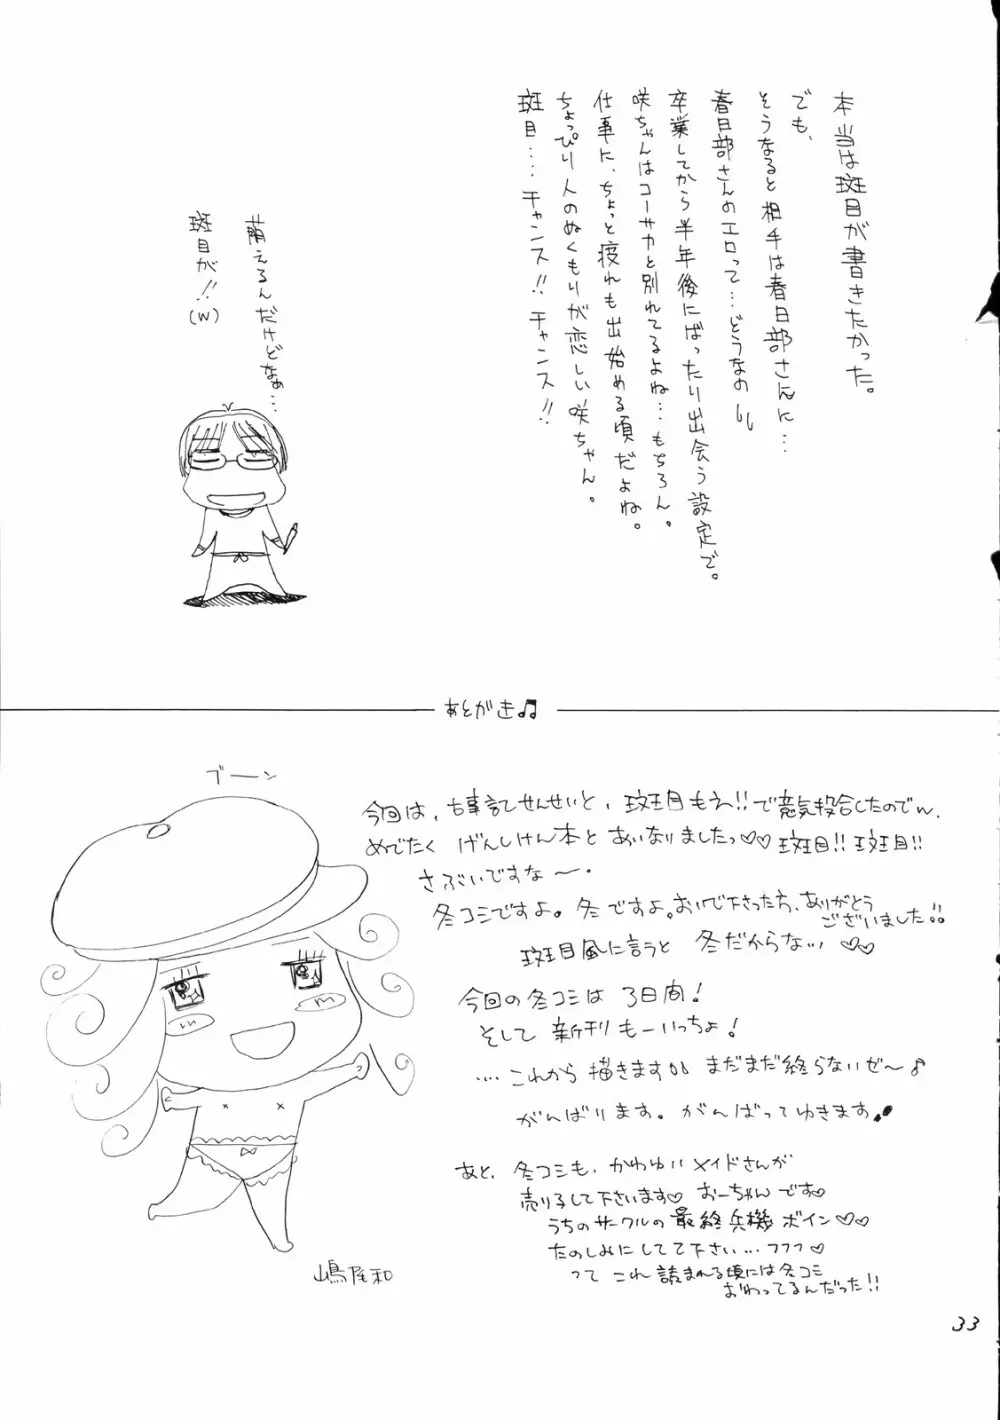 本当は斑目が書きたかった。
でも、
そうなると相手は春日部さんに…
春日部さんのエロって…どうなの
卒業してから半年後にばったり出会う設定で。
咲ちゃんはコーサカと別れてるよね…もちろん。
仕事に、ちょっと疲れも出始める頃だよね。
ちょっぴり人のぬくもりが恋しい咲ちゃん。
斑目…チャンス!!チャンス!!
萌えるんだけどなぁ…
斑目が!!
(W)
あとがき♫
ブーン
今回は、古事記せんせいと、斑目もえー!!で意気投合したのでw、
めでたく げんしけん本と あいなりましたっ♡♡ 斑目!! 斑目!!
さぶいですな〜・
冬コミですよ。冬ですよ。おいで下さった方、ありがとう
ございました!!
斑目風に言うと 冬だからな…♡♡
今回の冬コミは 3日間!
そして 新刊もーいっちょ!
…これから描きます まだまだ終らないぜ〜♪
がんばります。がんばってゆきます
あと、冬コミも、かわゆいメイドさんが
売り子して下さいます♡ おーちゃんです♡
うちのサークルの最終兵機ボイン♡♡
たのしみにしてて下さい…フフフ♡
って これ 読まれる頃には冬コミ
おわってるんだった!!
嶋屋和
33